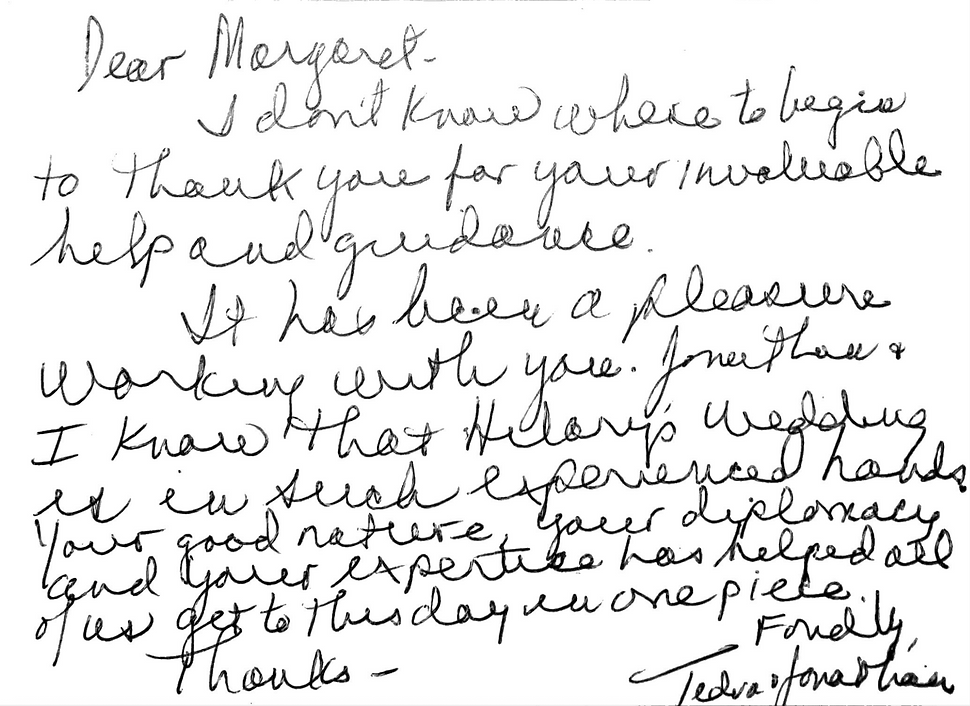 Dear Margaret-
I don't know where to begin
to thank you for your invaluable
help and guidance.
It has been a pleasure
working with you. Jonathan &
I know that Hilary's wedding
is in such experienced hands.
Your good nature, your diplomacy
and your expertise has helped all
of us get to this day in one piece.
Fondly,
Thanks -
Tedra & Jonathan